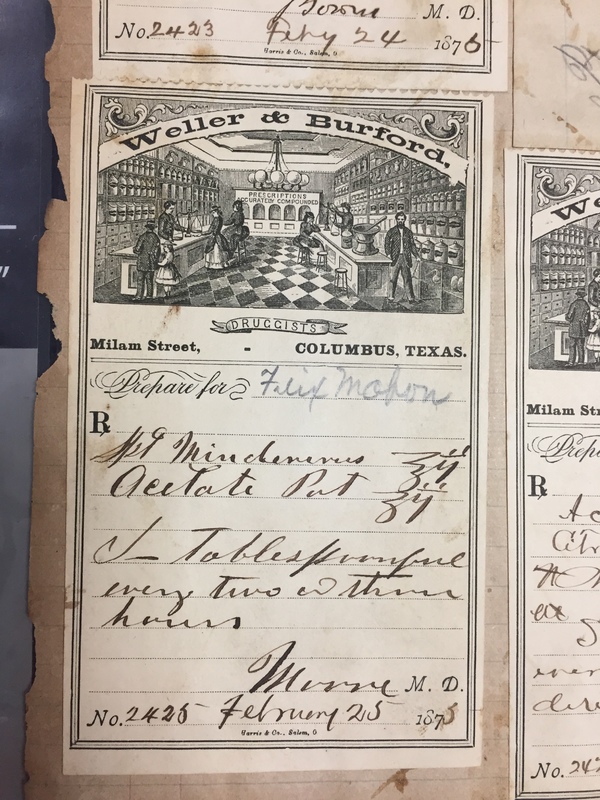 M. D.
No. 2423 Feby 24 1875
Harris & Co., Salem, O
Weller & Burford,
PRESCRIPTIONS
ACCURATELY COMPOUNDED
DRUGGISTS
Milam Street, - COLUMBUS, TEXAS.
Prepare for Felix Mahon
℞
Spt Mindererus ℥ij
Acetate Pot ʒij
S Tablespoonful
every two or three
hours
Moore M. D.
No. 2425 February 25 1875
Harris & Co., Salem, O
We
Milam Str
Prepa
℞
Ac
Citr
No. 242